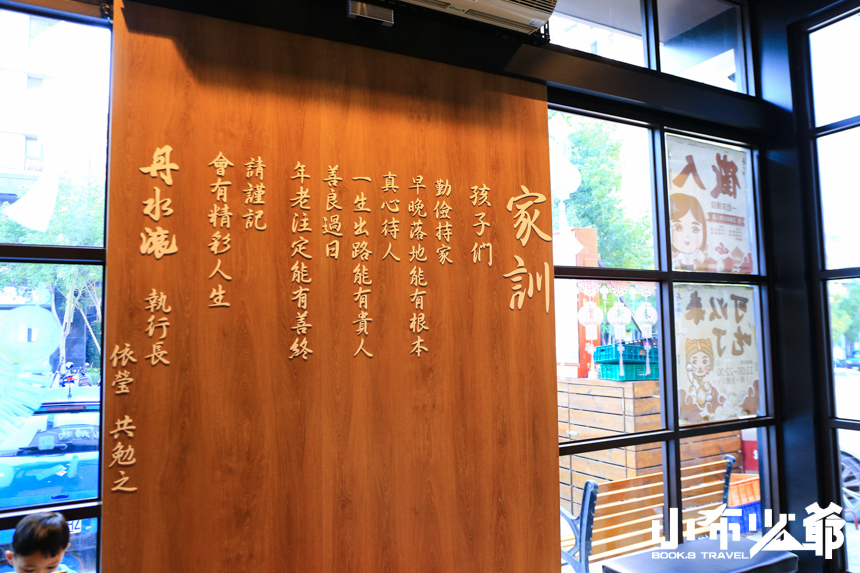 家訓
孩子們
勤儉持家
早晚落地能有根本
真心待人
一生出路能有貴人
善良過日
年老注定能有善終
請謹記
會有精彩人生
丹水滾 執行長
依瑩 共勉之
徵人
可以來
吃了
11:00-22:00
小布少爺
BOOK.B TRAVEL